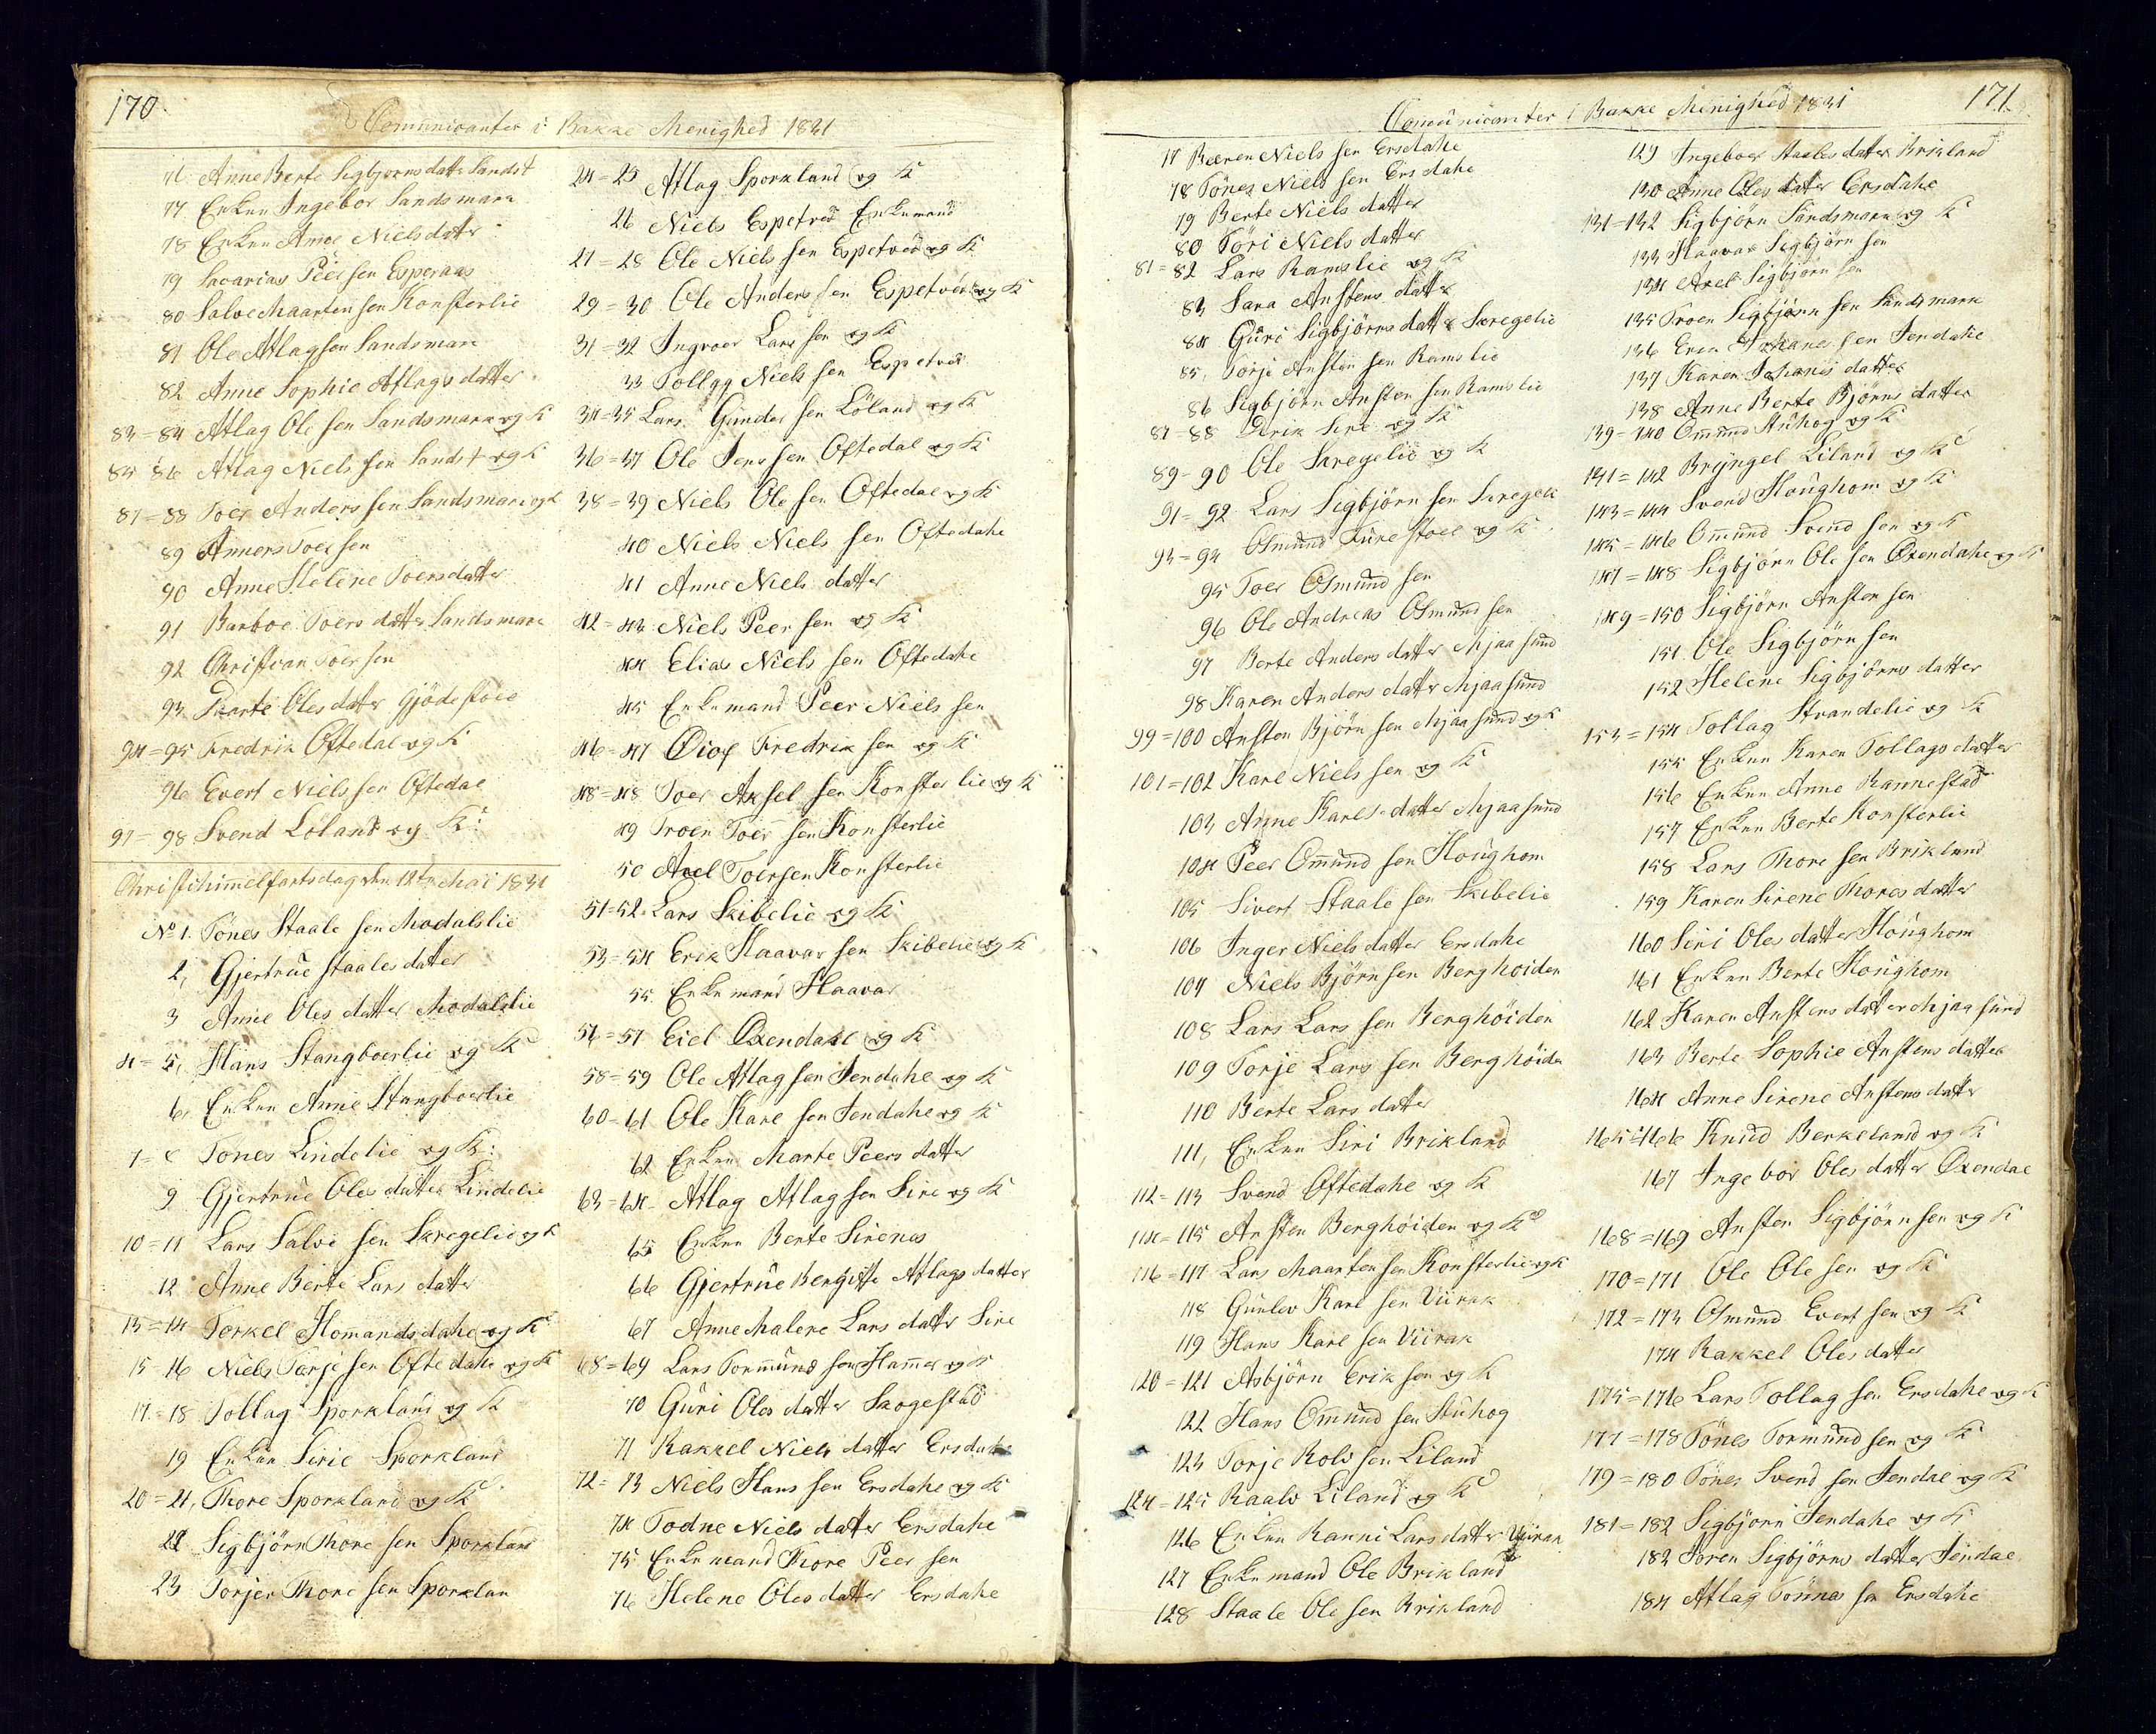 170.
Communicanter i Bakke Menighed 1831
76 Anne Berte Sigbjörnsdatter Sandst
77 Enken Ingebor Sandsmark
78 Enken Anne Nielsdatter
79 Sacarias Peersen Esperaas
80 Salve Maartensen Konsterlie
81 Ole Atlagsen Sandsmark
82 Anne Sophie Atlags datter
83=84 Atlag Ole sen Sandsmark og K
85=86 Atlag Niels sen Sandst og K
87=88 Toer Anders sen Sandsmark og K
89 Anners Toer sen
90 Anne Helene Toersdatter
91 Barboe Toers datter Sandsmark
92 Christian Toer sen
93 Marte Oles datter Gjödestoel
94=95 Fredrik Oftedal og K
96 Evert Niels sen Oftedal
97=98 Svend Loland og K:
Christi himmelfartsdag den 12te Mai 1831
No 1. Tönes Staale sen Modalslie
2, Gjertrue Staales datter
3 Anne Oles datter Modalslie
4=5, Hans Stangboerlie og K
6, Enken Anne Stangboerlie
7=8 Tönes Lindelie og K:
9 Gjertrue Oles datter Lindelie
10=11 Lars Salve sen Skregelie og K
12 Anne Berte Lars datter
13=14 Terkel Hommandsdahl og K
15=16 Niels Terje sen Oftedahl og K
17=18 Tollag Sporkland og K
19 Enken Sirie Sporkland
20=21, Thore Sporkland og K
22 Sigbjörn Thore sen Sporkland
23 Torjer Thore sen Sporklan
24=25 Atlag Sporkland og K
26 Niels Espetved Enkemand
27=28 Ole Niels sen Espetved og K
29=30 Ole Anders sen Espetved og K
31=32 Ingvoer Lars sen og K
33 Tollag Niels sen Espetved
34=35 Lars Gunder sen Löland og K
36=37 Ole Jens sen Oftedal og K
38=39 Niels Ole sen Oftedal og K
40 Niels Niels sen Oftedahl
41 Anne Niels datter
42=43 Niels Peer sen og K
44 Elias Niels sen Oftedahl
45 Enkemand Peer Niels sen
46=47 Eiof Fredrik sen og K
48=48 Toer Aksel sen Konsterlie og K
49 Troen Toer sen Konsterlie
50 Axel Toersen Konsterlie
51=52 Lars Skibelie og K
53=54 Erik Haavar sen Skibelie og K
55 Enkemand Haavar
56=57 Eiel Oxendahl og K
58=59 Ole Atlag sen Jendahl og K
60=61 Ole Karl sen Jendahl og K
62 Enken Marte Peers datter
63=64 Atlag Atlag sen Sire og K
65 Enken Berte Sirenes
66 Gjertrue Bergitte Atlags datter
67 Anne Malene Lars datter Sire
68=69 Lars Tormund sen Hammer og K
70 Guri Oles datter Skogestad
71 Rakkel Niels datter Ersdahl
72=73 Niels Hans sen Ersdahl og K
74 Todne Niels datter Ersdahl
75 Enkemand Thore Peer sen
76 Helene Oles datter Ersdahl
171
Communicanter i Bakke Menighed 1831
77 Beeren Niels sen Ersdahl
78 Tönes Niels sen Ersdahl
79 Berte Niels datter
80 Töri Niels datter
81=82 Lars Ramslie og K
83 Sara Anstens datter
84 Guri Sigbjörns datter Skregelie
85, Torje Ansten sen Ramslie
86 Sigbjörn Ansten sen Ramslie
87=88 Erik Sire og K
89=90 Ole Skregelie og K
91=92 Lars Sigbjörn sen Skregeli
93=94 Osmund Furestoel og K
95 Toer Osmund sen
96 Ole Andreas Osmund sen
97 Berte Anders datter Mjaasund
98 Karen Anders datter Mjaasund
99=100 Ansten Björn sen Mjaasund og K
101=102 Karl Niels sen og K
103 Anne Karls datter Mjaasund
104 Peer Ommund sen Houghom
105 Sivert Staale sen Skibelie
106 Inger Niels datter Ersdahl
107 Niels Björn sen Berghöiden
108 Lars Lars sen Berghöiden
109 Torje Lars sen Berghöiden
110 Berte Lars datter
111, Enken Siri Brikland
112=113 Svend Oftedahl og K
114=115 Ansten Berghöiden og K
116=117 Lars Maarten sen Konsterlie og K
118 Gunlev Karl sen Viirak
119 Hans Karl sen Viirak
120=121 Asbjörn Erik sen og K
122 Hans Ommund sen Stuhog
123 Torje Rolv sen Liland
124=125 Raalv Liland og K
126 Enken Ranni Lars datter Viirak
127 Enkemand Ole Brikland
128 Staale Ole sen Brikland
129 Ingeboer Staales datter Brikland
130 Anne Oles datter Ersdahl
131=132 Sigbjörn Sandsmark og K
133 Haavar Sigbjörn sen
134 Axel Sigbjörn sen
135 Troen Sigbjörn sen Sandsmark
136 Johanes sen Jendahl
137 Karen Johanes datter
138 Anne Berte Björns datter
139=140 Ommund Stuhog og K
141=142 Bryngel Liland og K
143=144 Svend Houghom og K
145=146 Ommund Svend sen og K
147=148 Sigbjörn Ole sen Oxendahl og K
149=150 Sigbjörn Ansten sen
151. Ole Sigbjörn sen
152 Helene Sigbjörns datter
153=154 Tollag Strandelie og K
155 Enken Karen Tollags datter
156 Enken Anne Rannestad
157 Enken Berte Konsterlie
158 Lars Thore sen Brikland
159 Karen Sirene Thores datter
160 Siri Oles datter Houghom
161 Enken Berte Houghom
162 Karen Anstens datter Mjaasund
163 Berte Sophie Anstens datter
164 Anne Sirene Anstens datter
165=166 Knud Berkeland og K
167 Ingebor Oles datter Oxendal
168=169 Ansten Sigbjörn sen og K
170=171 Ole Ole sen og K
172=173 Osmund Evert sen og K
174 Rakkel Oles datter
175=176 Lars Tollag sen Ersdahl og K
177=178 Tönes Tormund sen og K
179=180 Tönes Svend sen Jendal og K
181=182 Sigbjörn Jendahl og K
183 Soren Sigbjörns datter Jendal
184 Atlag Tönnes sen Ersdahl